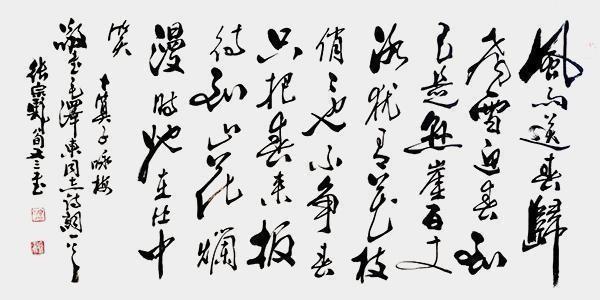 風雨送春歸
飛雪迎春到
已是懸崖百丈
冰猶有花枝
俏々也不争春
只把春来报
待到山花爛
漫時她在丛中
笑
卜算子咏梅
敬書毛澤東同志詩詞一首
張